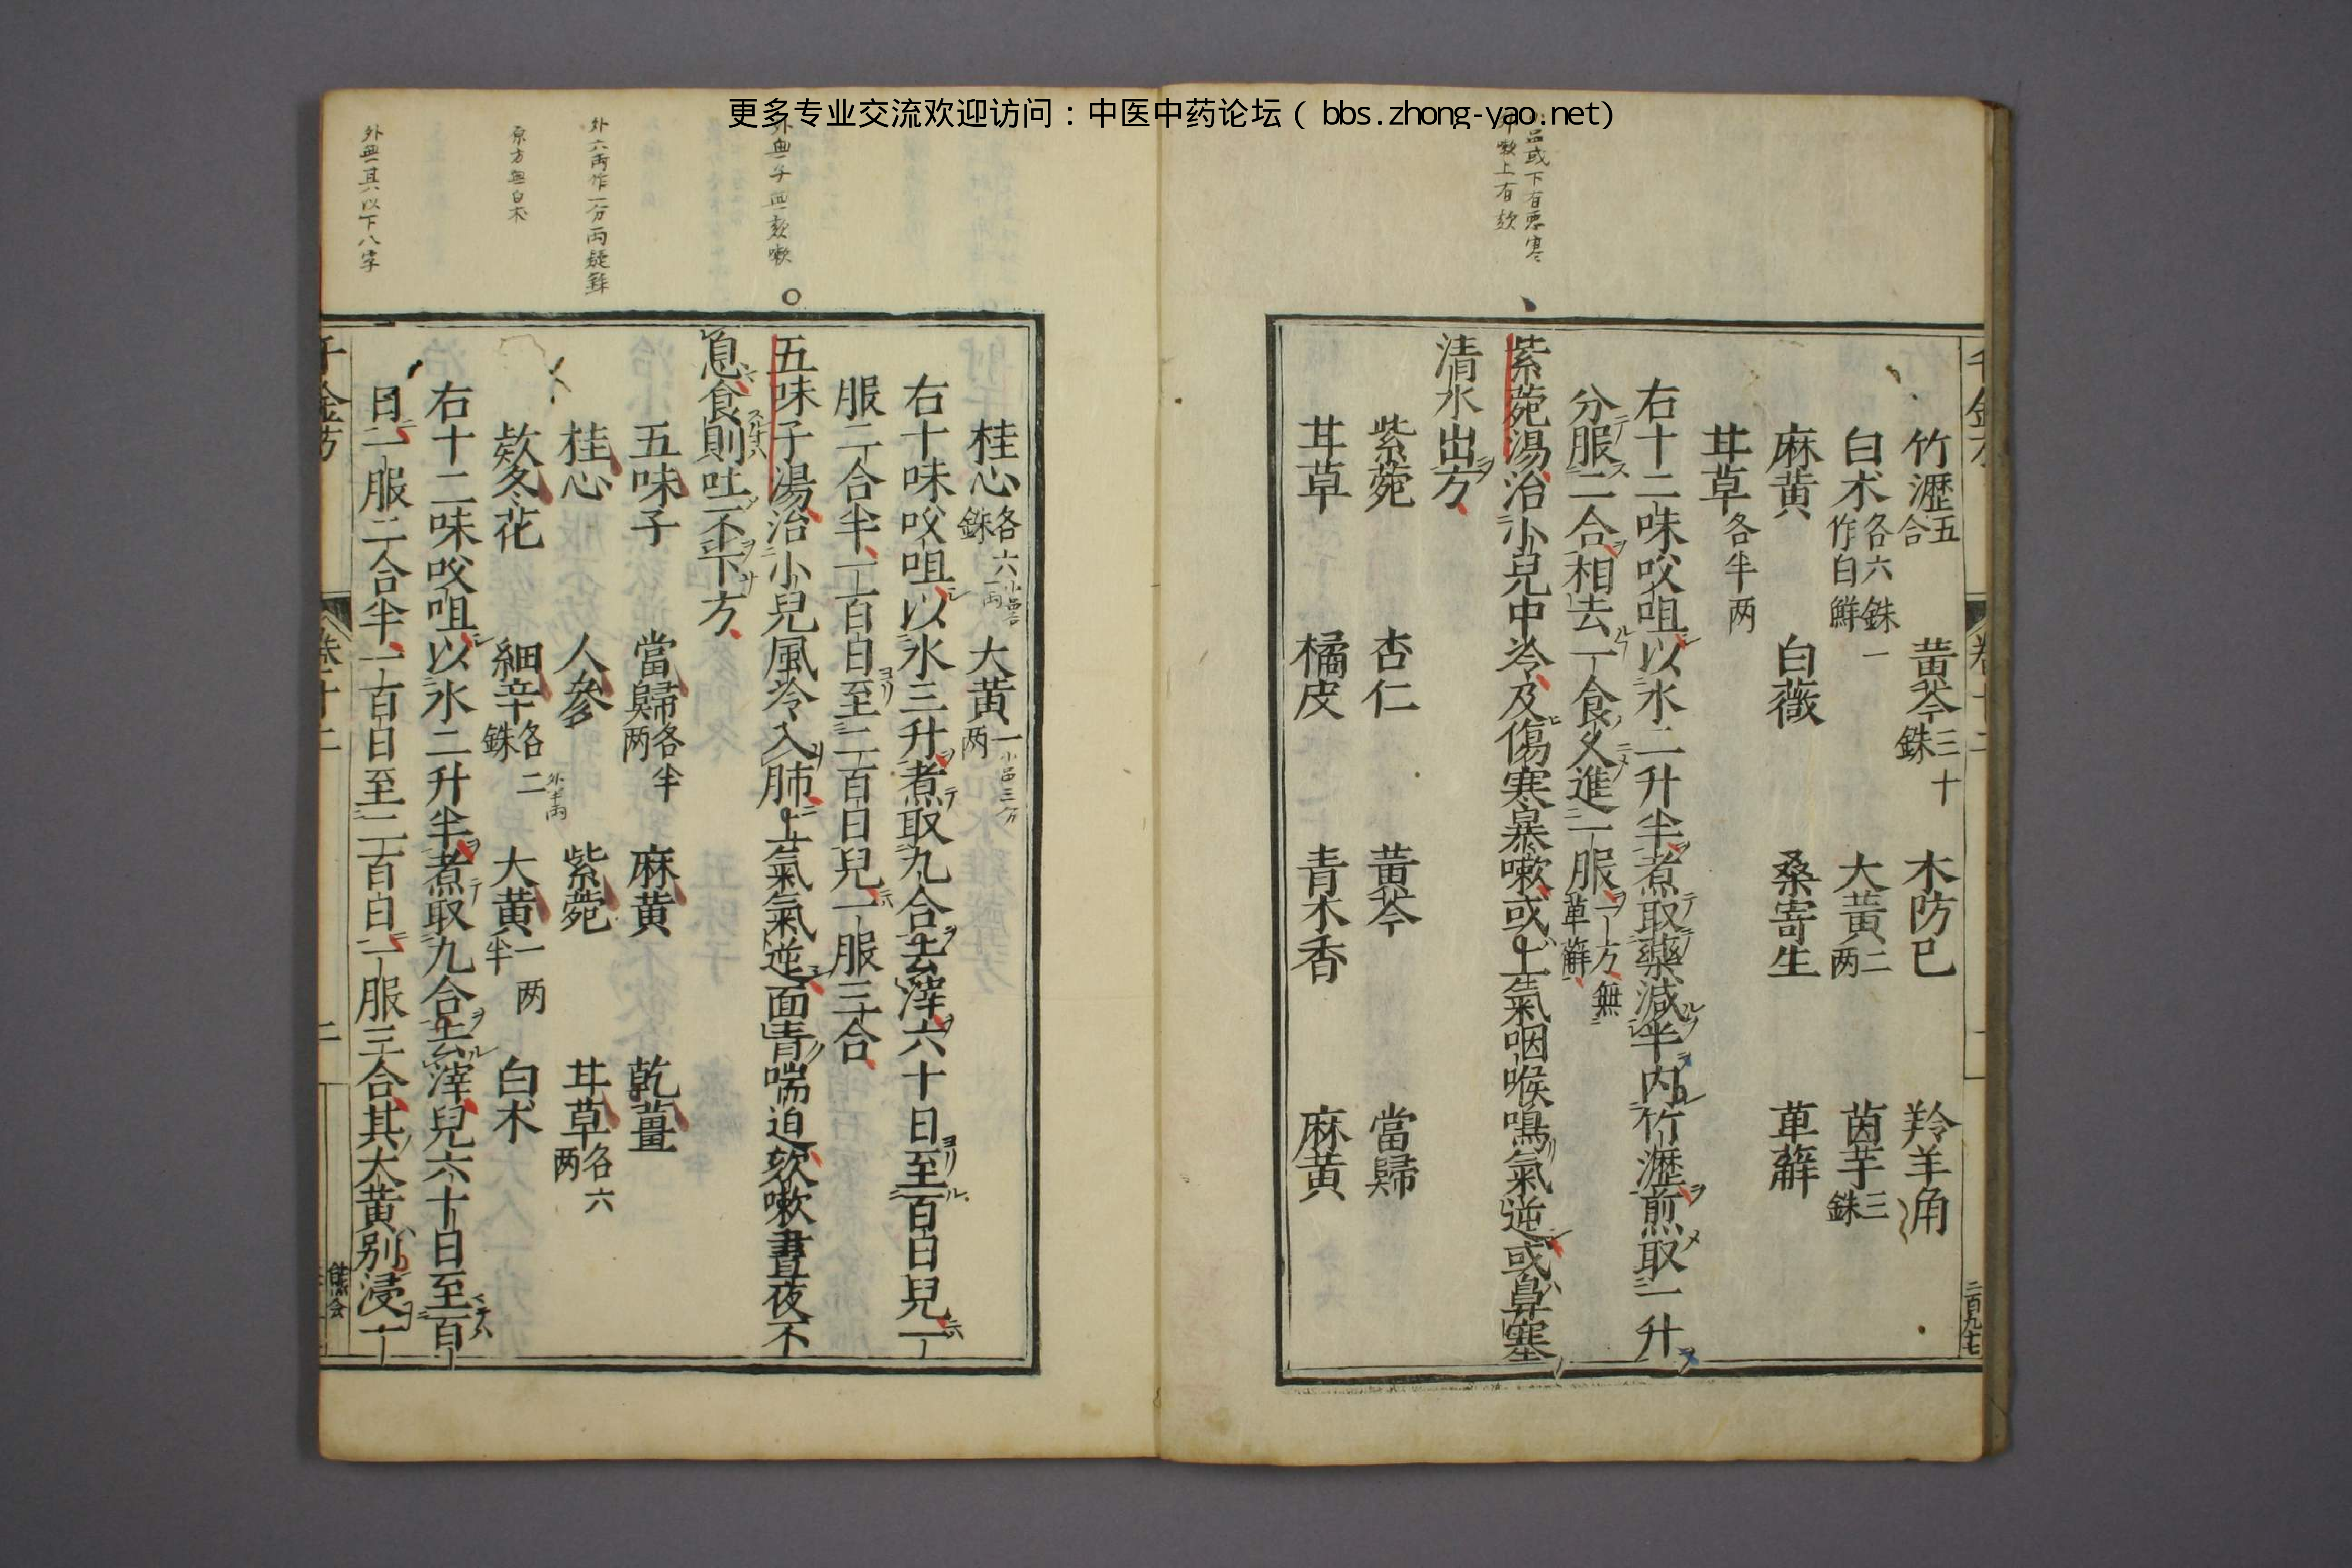 更多专业交流欢迎访问：中医中药论坛（ bbs.zhong-yao.net）
竹瀝五合　黄芩三十銖　木防已　羚羊角
白术各六銖一作白鮮　大黄二两　茵芋三銖
麻黄　白薇　桑寄生　萆薢
甘草各半两
右十二味㕮咀以水二升半煮取藥減半内竹瀝煎取一升
分服二合相去一食乆進一服一方無萆薢
紫菀湯治小兒中冷及傷寒暴嗽或上氣咽喉鳴氣逆或鼻塞
清水出方
紫菀　杏仁　黄芩　當歸
甘草　橘皮　青木香　麻黄
桂心各六銖　大黄一两
右十味㕮咀以水三升煮取九合去滓六十日至百日兒一
服二合半一百日至二百日兒一服三合
五味子湯治小兒風冷入肺上氣氣逆面青喘迫欬嗽晝夜不
息食則吐不下方
五味子　當歸各半两　麻黄　乾薑
桂心　人參　紫菀　甘草各六两
欵冬花　細辛各二銖　大黄一两半　白术
右十二味㕮咀以水二升半煮取九合去滓兒六十日至百
日一服二合半一百日至二百日一服三合其大黄别浸一
千金方　卷十二
二百九七
外無子無欬嗽
外六两作一分两疑銖
原方無白术
外無其以下八字
外半两